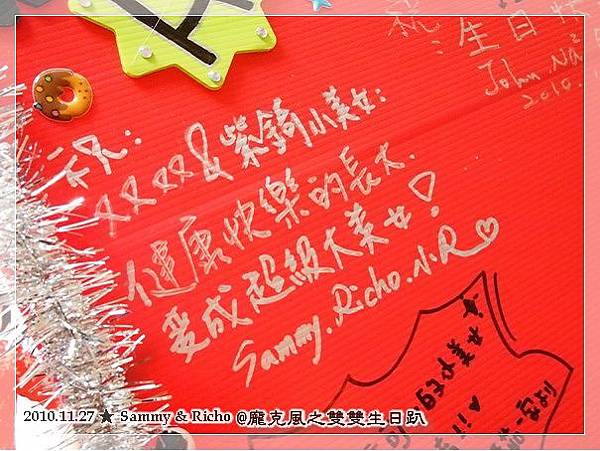 祝：
双双&紫錡小美女：
健康快樂的長大.
變成超級大美女！
Sammy.Richo.N.R♡
祝：生日快
John.
2010.
2010.11.27 ★ Sammy & Richo @龐克風之雙雙生日趴